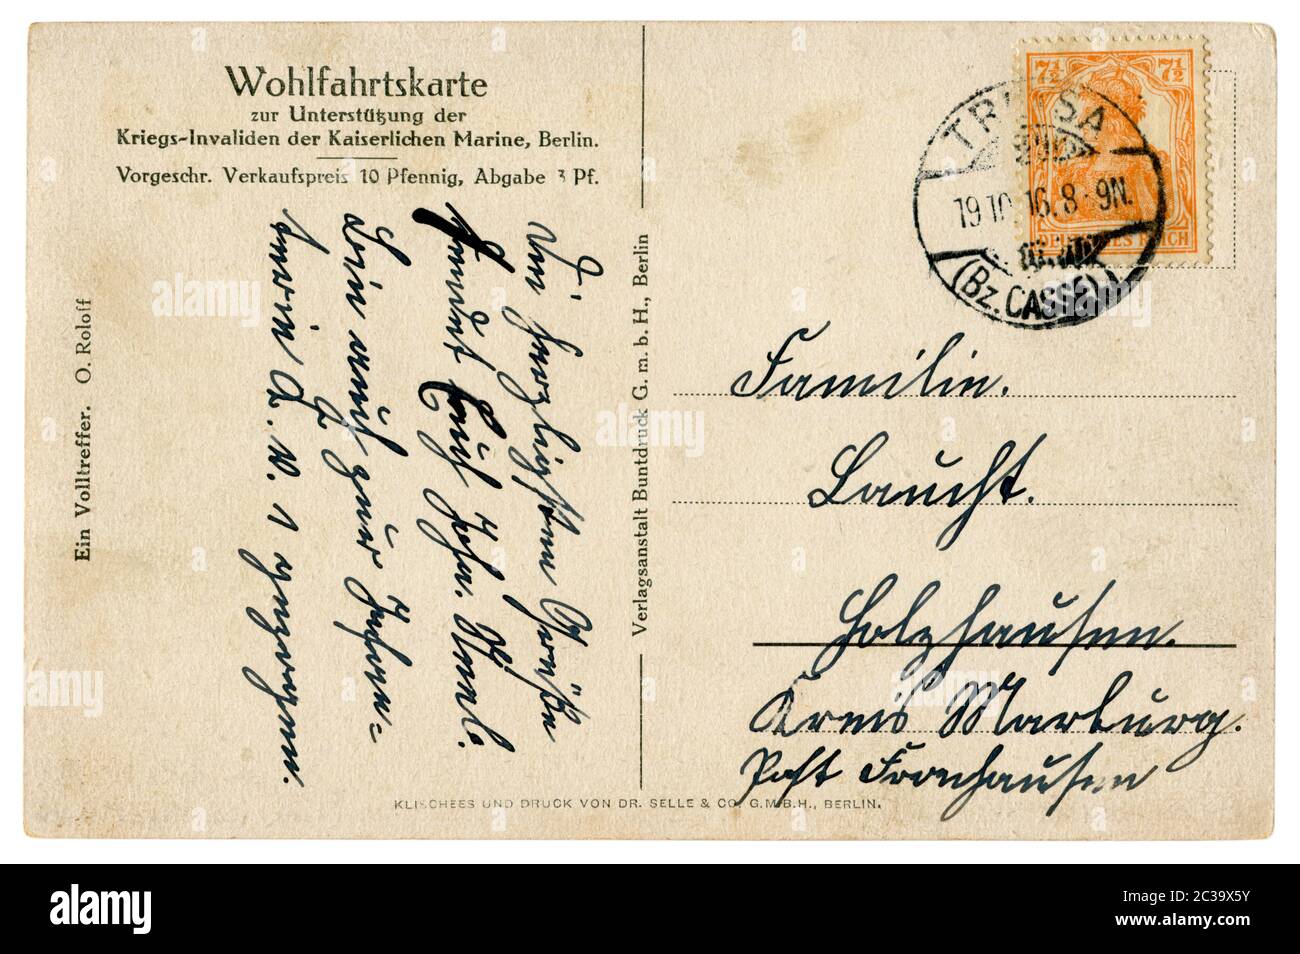 Wohlfahrtskarte
zur Unterstützung der
Kriegs-Invaliden der Kaiserlichen Marine, Berlin.
Vorgeschr. Verkaufspreis 10 Pfennig, Abgabe 3 Pf.
Ein Volltreffer. O. Roloff
Die herzligsten Grüße
sendet Euch
Bin auch zur
Verlagsanstalt Buntdruck G. m. b. H., Berlin
7½ 7½
DEUTSCHES REICH
TREYSA
19.10.16.8-9N.
(Bz. CASSEL)
Familie.
Laucht.
Holzhausen.
Kreis Marburg.
Post Fronhausen
KLISCHEES UND DRUCK VON DR. SELLE & CO. G.M.B.H., BERLIN.
alamy
Image ID: 2C39X5Y
www.alamy.com